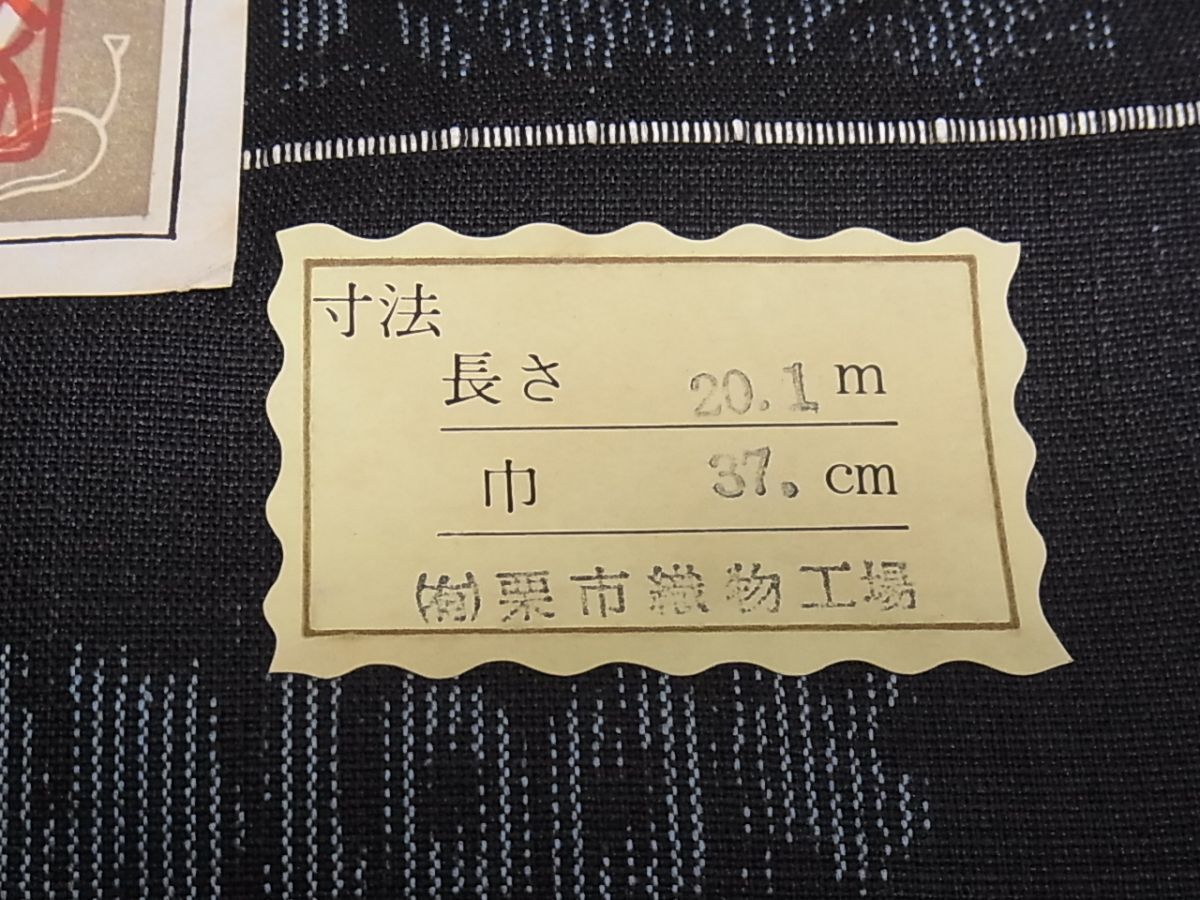 寸法
長さ 20.1 m
巾 37. cm
㈲栗市織物工場